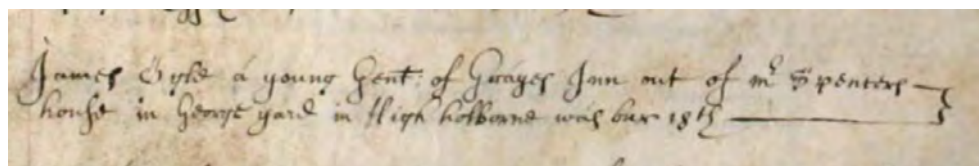 James Gyle a young Gent: of Grayes Inn out of mr Spencers
house in George yard in High holborne was bur 18th